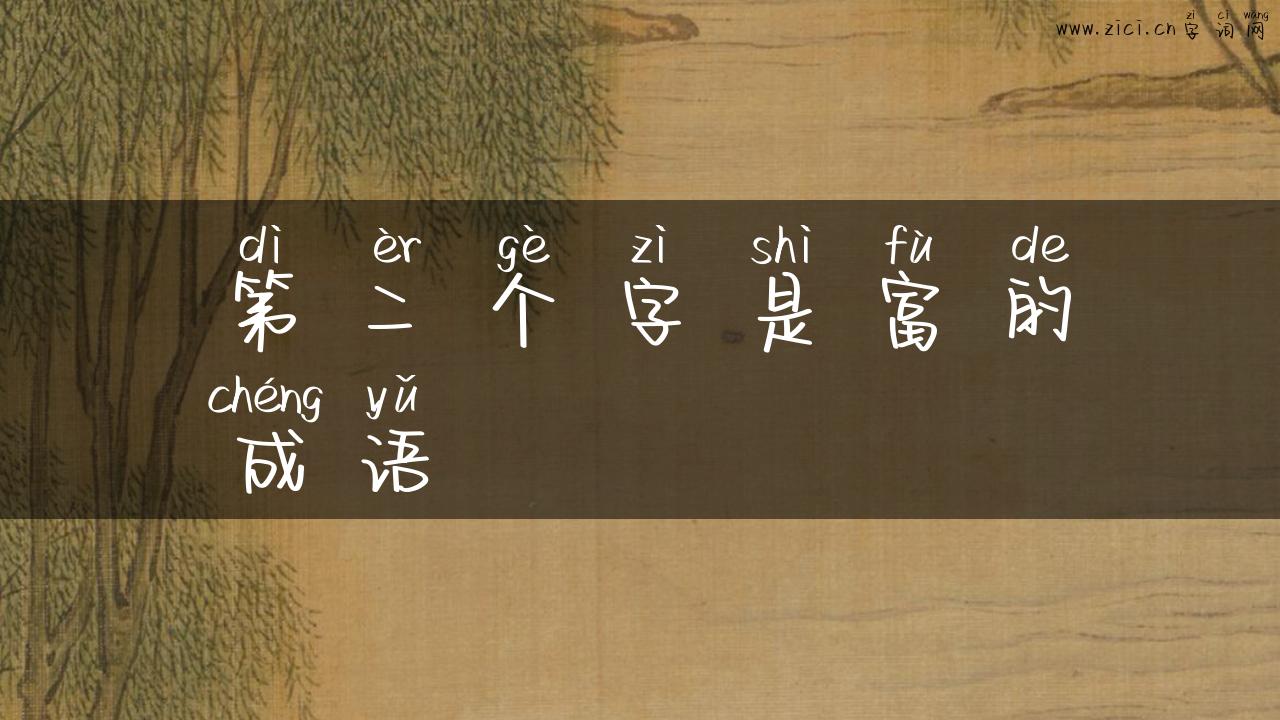 zì cí wǎng
www.zici.cn 字 词 网
dì èr gè zì shì fù de
第 二 个 字 是 富 的
chéng yǔ
成 语